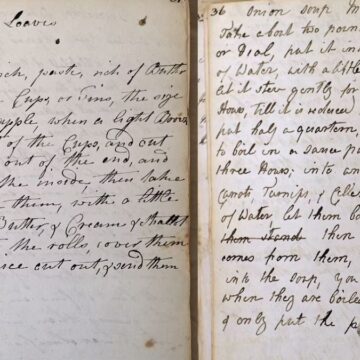 Loaves
paste, rich of Butter
Cups, or Tins, the size
apple when a light Brown
of the Cups, and cut
out of the end, and
the inside, then take
them, with a little
Butter, & Cream & shallot
the rolls, cover them
cut out, & send them
36 Onion Soup
Take about two
or Veal, put it in
of Water, with a little
let it stew gently for
Hours, till it is reduced
put half a quartern
to boil in a sauce pa
three Hours; into an
Carrots Turnips, & Cele
of Water, let them bo
them then
comes from them,
into the soup, you
when they are boile
& only put the